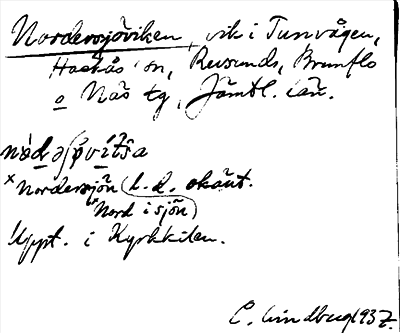 Nordersjöviken, vik i Tunvågen,
Hackås sn, Revsunds, Brunflo
o Näs tg, Jämtl. län.
×Nordersjön (l. d. okänt.
×Nord i sjön)
Uppt. i Kyrkkilen.
C. Lindberg 1937.